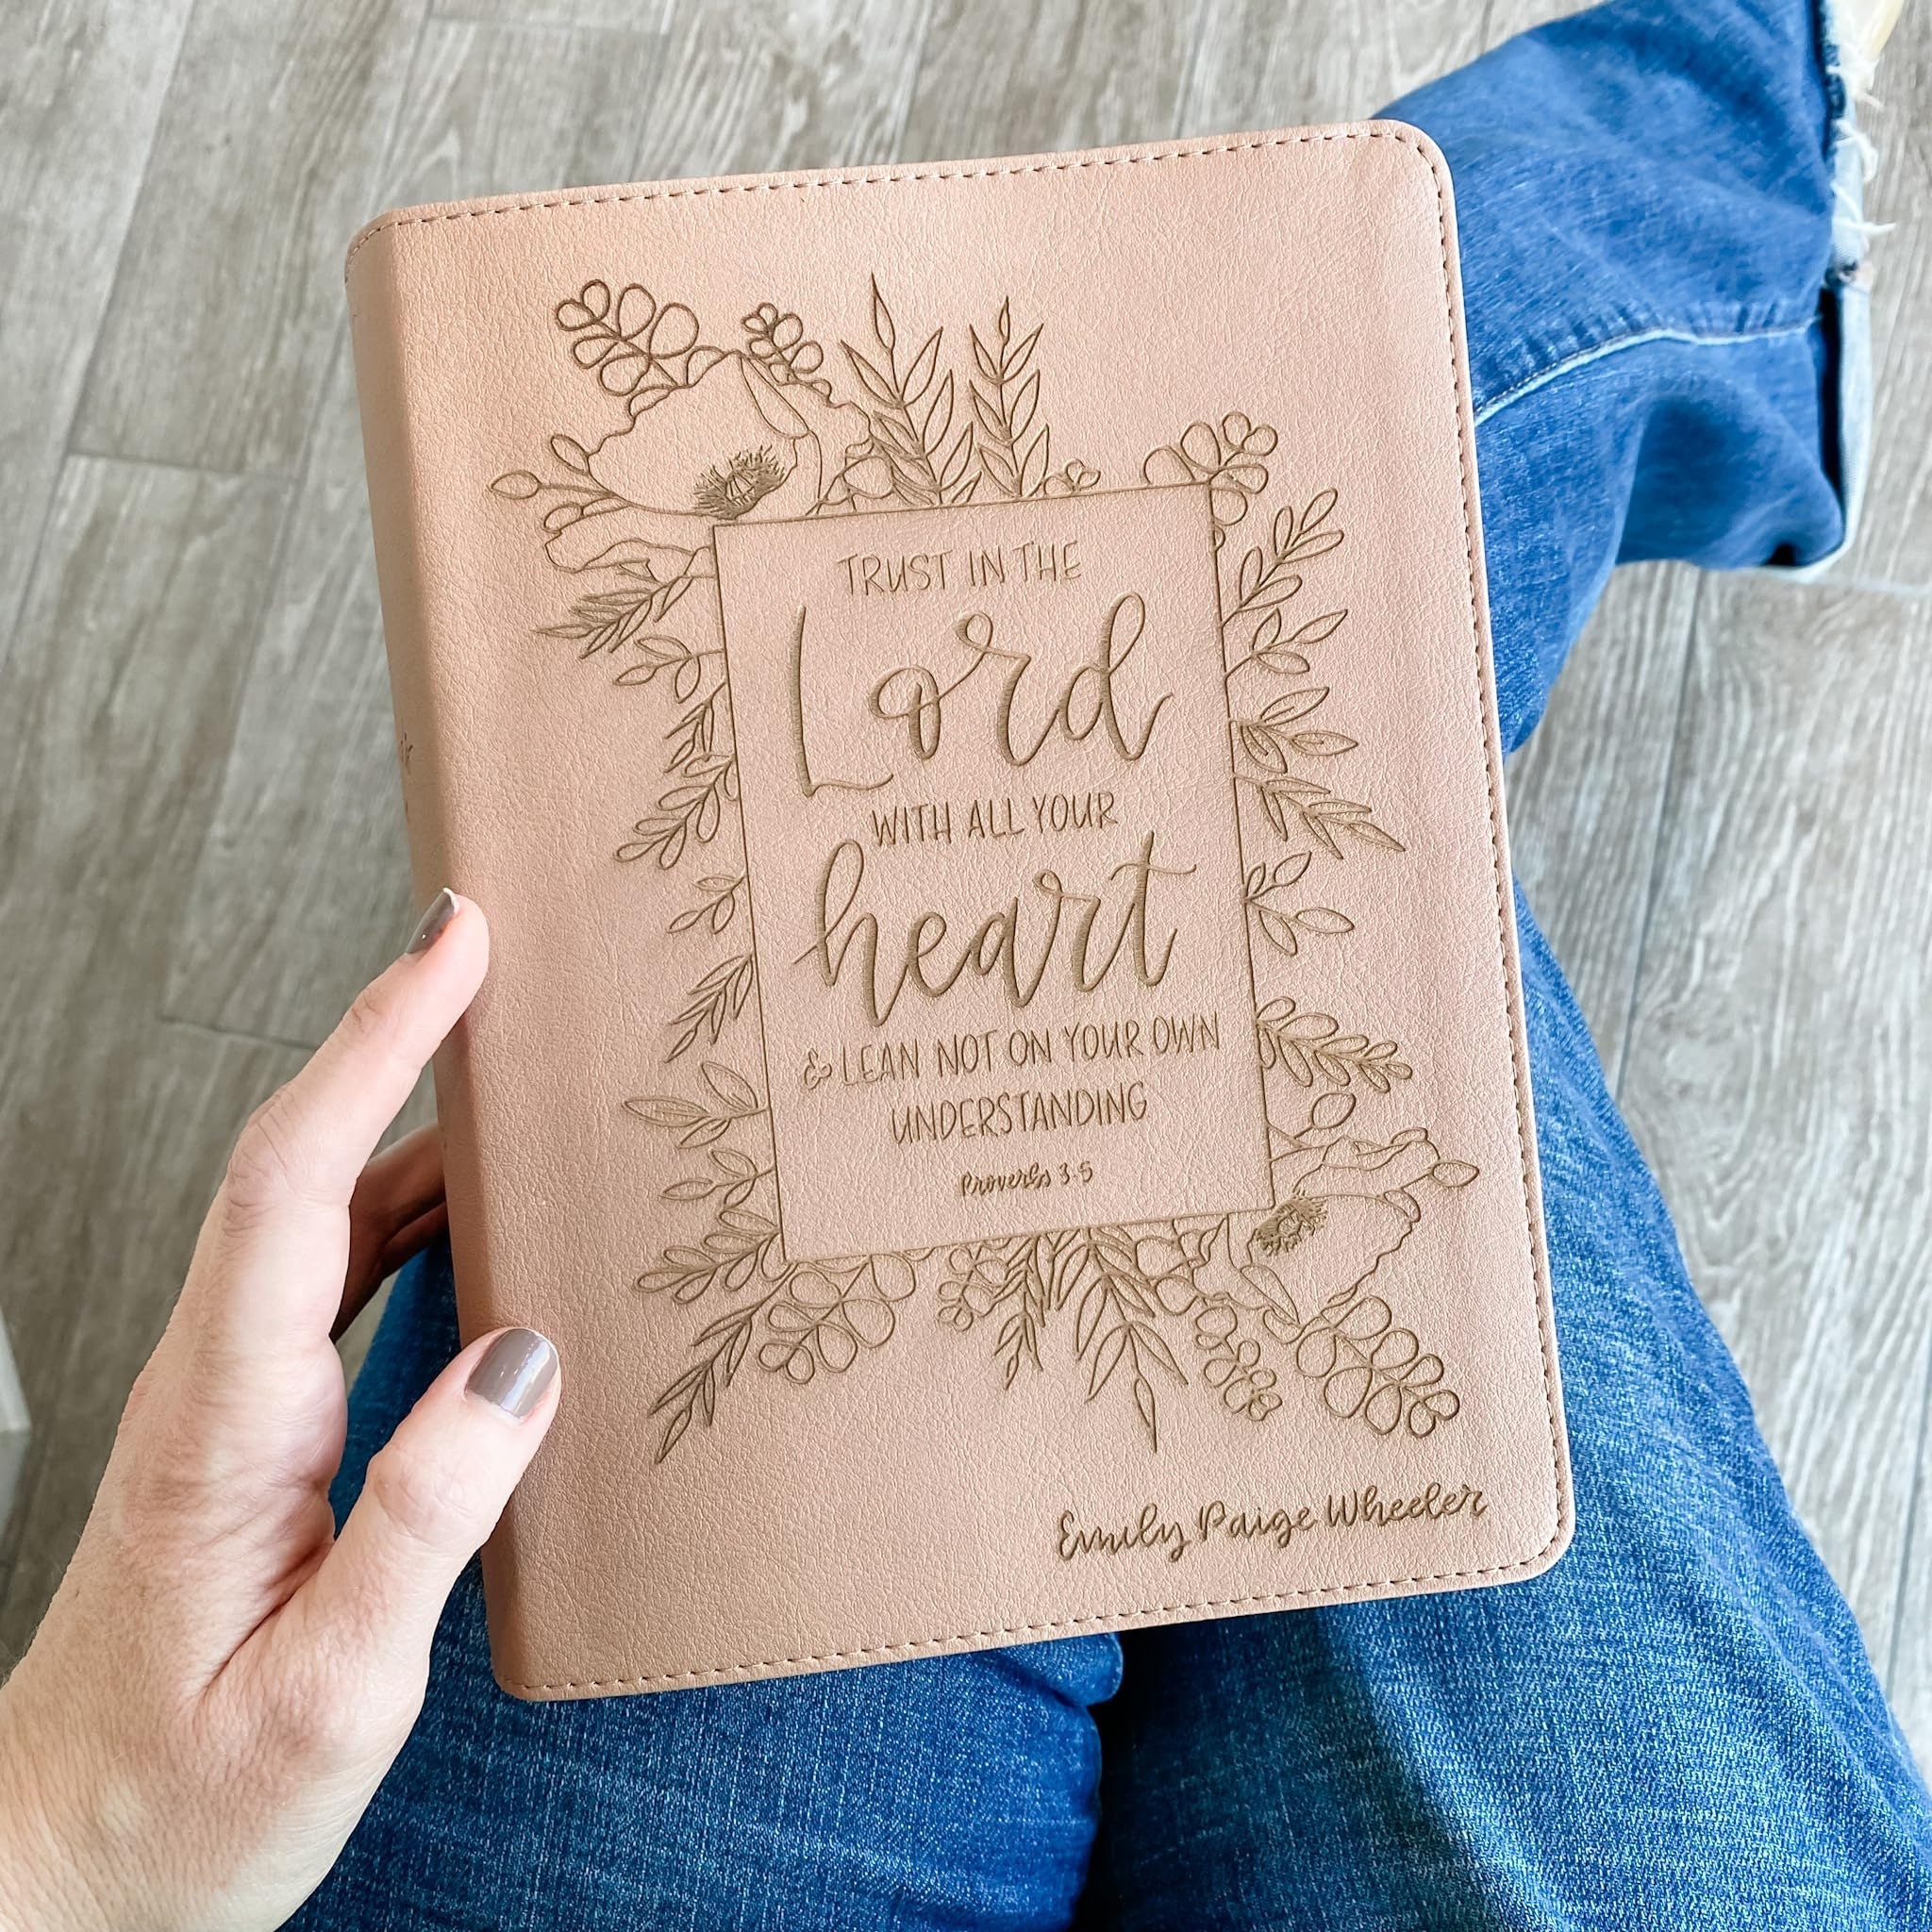 TRUST IN THE
Lord
WITH ALL YOUR
heart
& LEAN NOT ON YOUR OWN
UNDERSTANDING
Proverbs 3:5
Emily Paige Wheeler